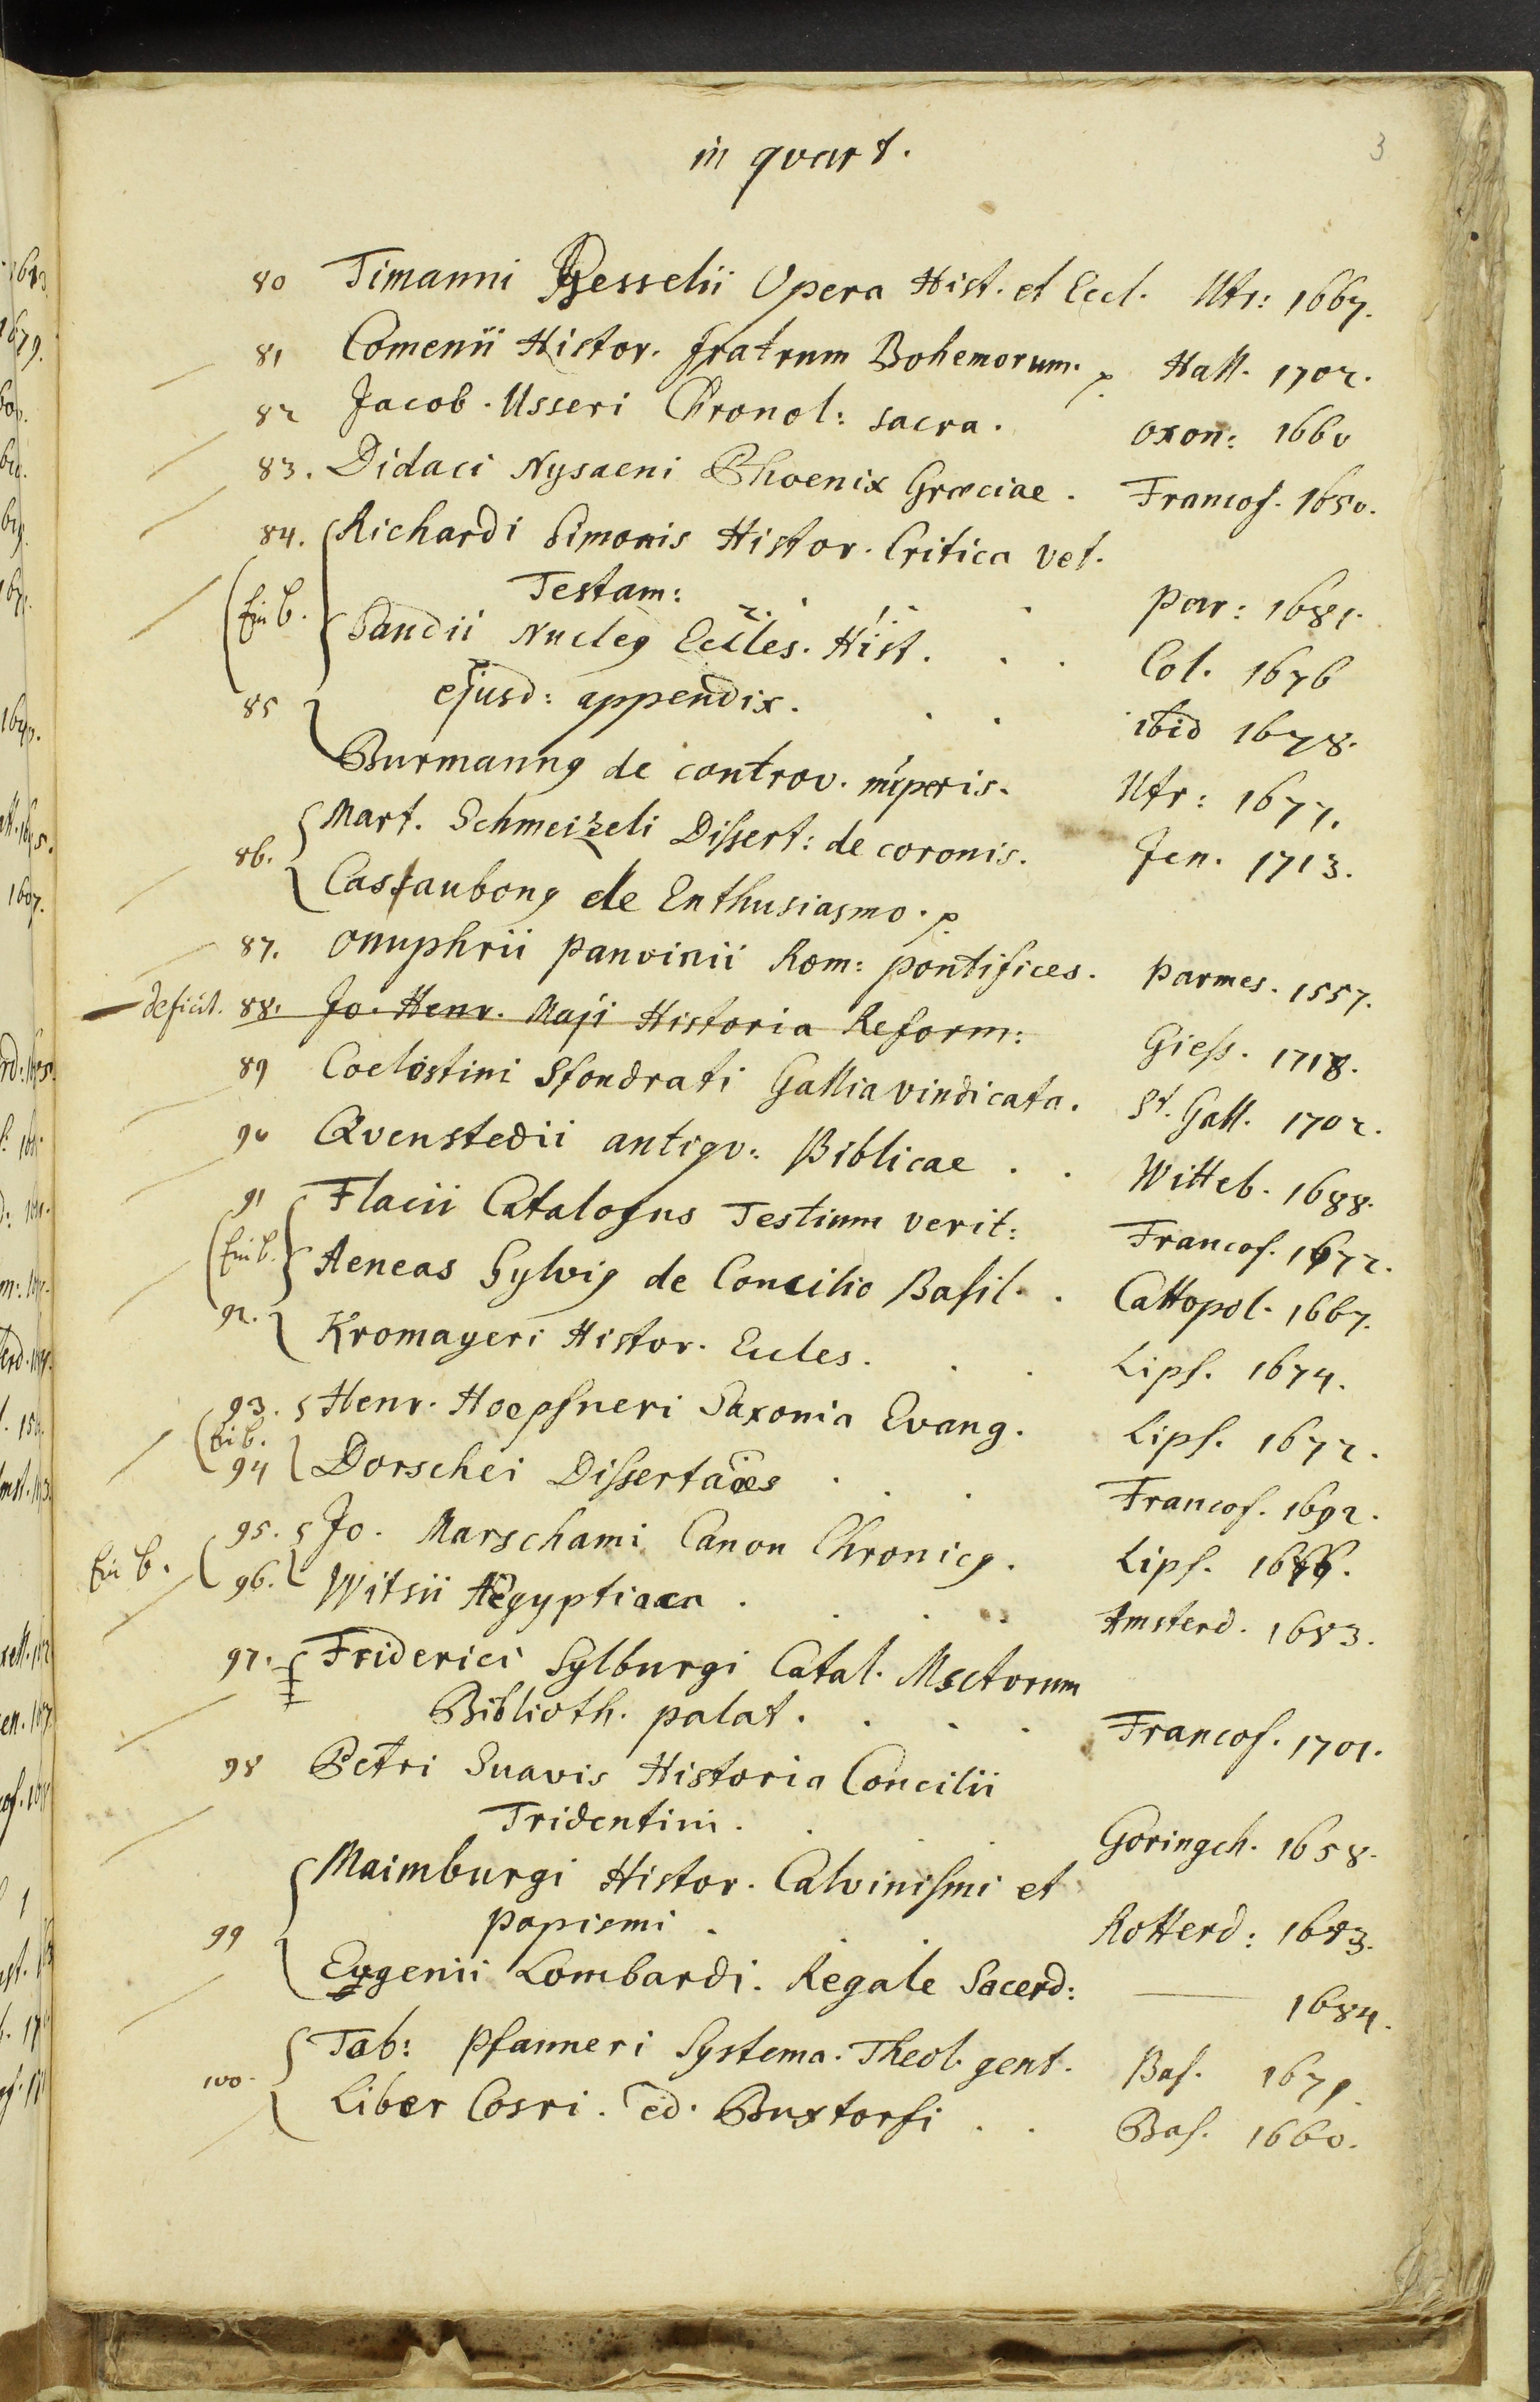 3
in qvart.
80 Timanni Gesselii Opera Hist. et Eccl. Utr: 1667.
81 Comenii Histor. fratrum Bohemorum. p. Hall. 1702.
82 Jacob. Usseri Chronol: sacra. Oxon: 1660
83. Didaci Nysaeni Phoenix Græciae. Francof. 1650.
84. Richardi Simonis Histor. Critica vet.
Testam: . . . par: 1681.
Ein b. Sandii Nucleq Eccles. Hist. . . Col. 1676
ejusd: appendix. . . ibid 1678.
85 Burmannq de controv. nuperis. Utr: 1677.
86. Mart. Schmeizeli Dissert: de coronis. Jen. 1713.
Casaubonq de Enthusiasmo. p.
87. Onuphrii panvinii Rom: pontifices. Parmes. 1557.
deficit. 88. Jo. Henr. Maji Historia Reform: Giess. 1718.
89 Coelestini Sfondrati Gallia vindicata. St. Gall. 1702.
90 Qvenstedii antiqv: Biblicae . . Witteb. 1688.
91 Flacii Catalogus Testium verit: Francof. 1672.
Ein b. Aeneas Sylviq de Concilio Basil. . Cattopol. 1667.
92. Kromayeri Histor. Eccles. . . Lips. 1674.
93. Henr. Hoepfneri Saxonia Evang. Lips. 1672.
Ein b.
94 Dorschei Dissertaões . . . Francof. 1692.
95. Jo. Marschami Canon Chronicq. Lips.
Ein b.
96. Witsii Aegyptiaca . . . Amsterd. 1683.
97. Friderici Sylburgi Catal. Msctorum
Biblioth. palat. . . . Francof. 1701.
98 Petri Suavis Historia Concilii
Tridentini. . . Goringch. 1658.
99 Maimburgi Histor. Calvinismi et
papismi . . . Rotterd: 1683.
Eugenii Lombardi. Regale Sacerd: — 1684.
100. Tob: Pfanneri Systema. Theol. gent. Bas. 1679.
Liber Cosri. ed. Buxtorfi . . Bas. 1660.